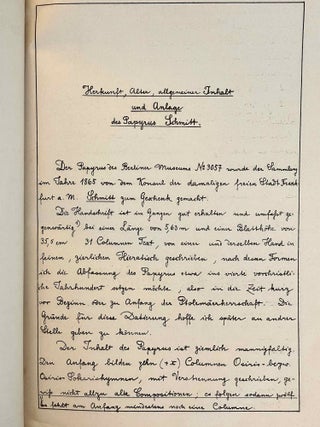 Herkunft, Alter, allgemeiner Inhalt
und Anlage
des Papyrus Schmitt.
Der Papyrus des Berliner Museums No 3057 wurde der Sammlung
im Jahre 1865 von dem Konsul der damaligen freien Stadt Frank
furt a. M. Schmitt zum Geschenk gemacht.
Die Handschrift ist im Ganzen gut erhalten und umfaßt ge-
genwärtig bei einer Länge von 5,63 m und einer Blatthöhe von
35,5 cm 31 Columnen Text, von einer und derselben Hand in
feinem, zierlichem Hieratisch geschrieben, nach dessen Formen
ich die Abfassung des Papyrus etwa ins vierte vorchristli-
che Jahrhundert setzen möchte, also in die Zeit kurz
vor Beginn oder zu Anfang der Ptolemäerherrschaft. Die
Gründe für diese Datierung hoffe ich später an andrer
Stelle geben zu können.
Der Inhalt des Papyrus ist ziemlich mannigfaltig.
Den Anfang bilden zehn (+x) Columnen Osiris- bezw.
Osiris-Sokarishymnen, mit Verstrennung geschrieben, ge-
wiß nicht allzu alte Compositionen; es folgen sodann zwölf
Es fehlt am Anfang mindestens noch eine Columne.